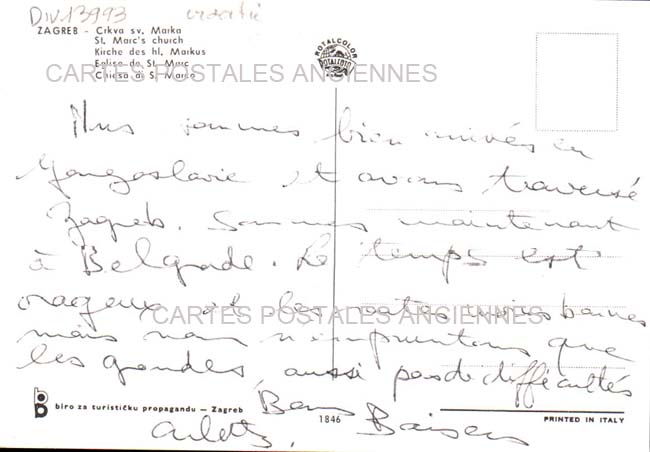 Div 13993
ZAGREB - Crkva sv. Marka
St. Marc's church
Kirche des hl. Markus
Eglise de St. Marc
Chiesa di S. Marco
ROTALCOLOR
ROTALFOTO
CARTES POSTALES ANCIENNES
Nous sommes bien arrivés en
Yougoslavie et avons traversé
Zagreb. Sommes maintenant
à Belgrade. Le temps est
orageux et les routes moins bonnes
CARTES POSTALES ANCIENNES
mais nous n'empruntons que
les grandes, aussi pas de difficultés
Bons Baisers
biro za turističku propagandu – Zagreb
1846
PRINTED IN ITALY